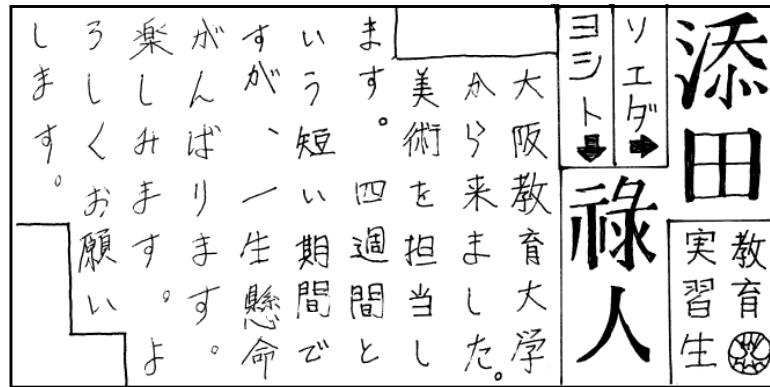 添田
教育
実習生
ソエダ➡
ヨシト⬇
祿人
大阪教育大学
から来ました。
美術を担当し
ます。四週間と
いう短い期間で
すが、一生懸命
がんばります。
楽しみます。よ
ろしくお願い
します。